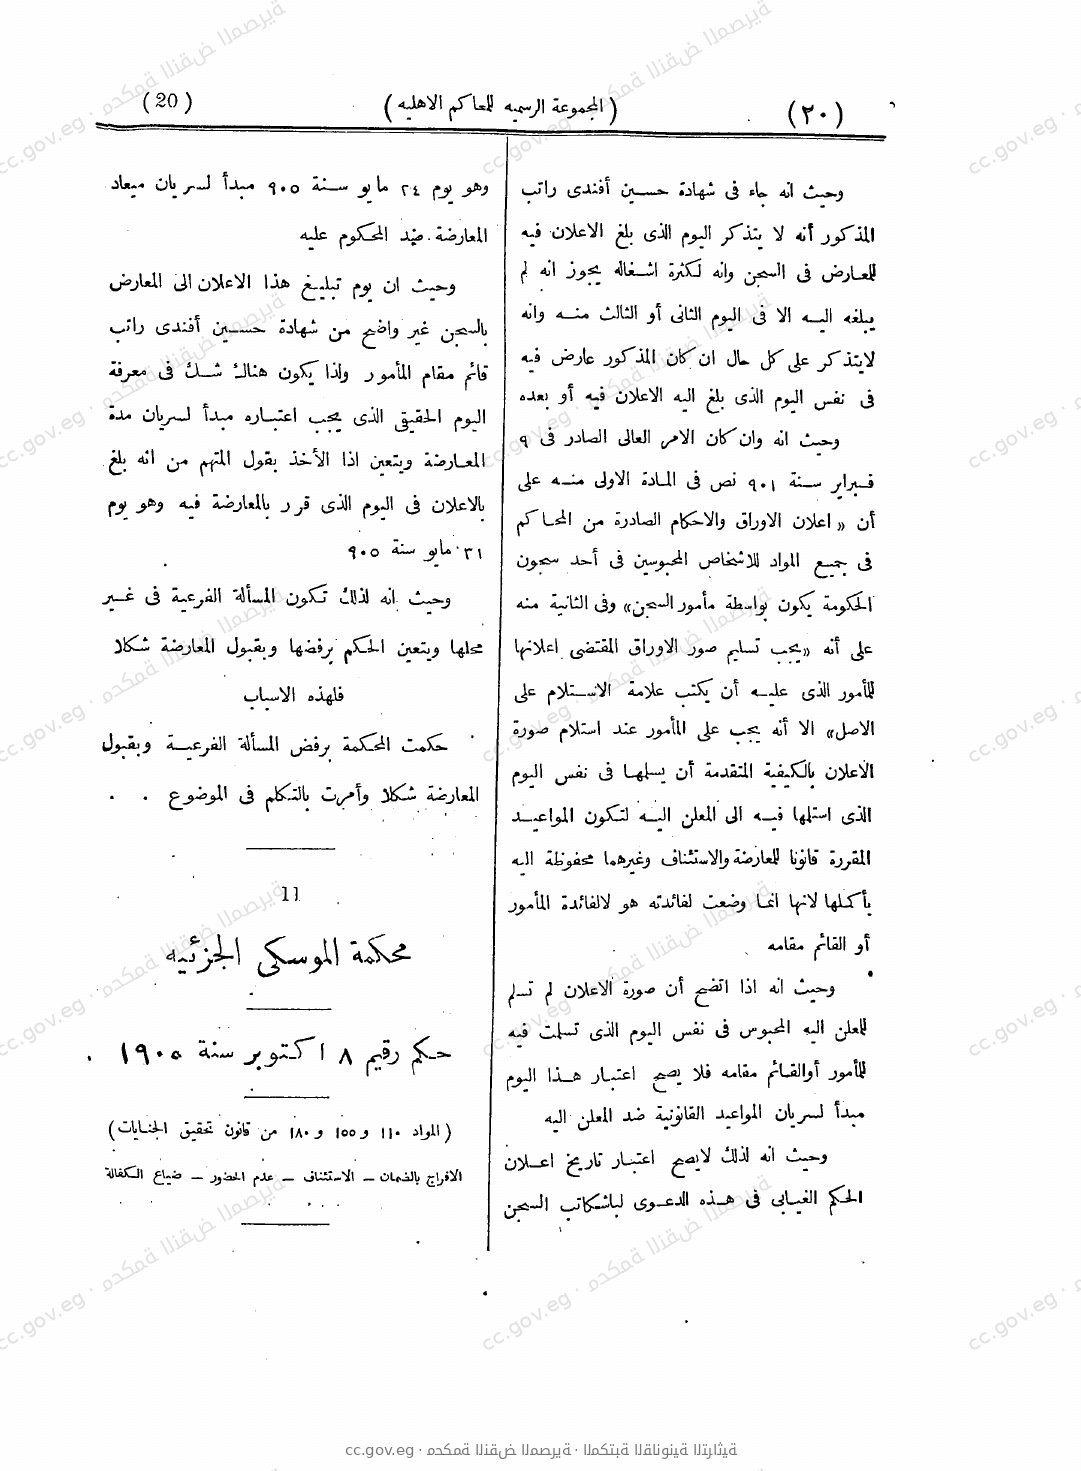 (٢٠) (المجموعة الرسميه للمحاكم الاهليه) (20)
وحيث انه جاء فى شهادة حسين أفندى راتب
المذكور أنه لا يتذكر اليوم الذى بلغ الاعلان فيه
للمعارض فى السجن وانه لكثرة اشغاله يجوز انه لم
يبلغه اليه الا فى اليوم الثانى أو الثالث منه وانه
لايتذكر على كل حال ان كان المذكور عارض فيه
فى نفس اليوم الذى بلغ اليه الاعلان فيه أو بعده
وحيث انه وان كان الامر العالى الصادر فى ٩
فبراير سنة ٩٠١ نص فى المادة الاولى منه على
أن « اعلان الاوراق والاحكام الصادرة من المحاكم
فى جميع المواد للاشخاص المحبوسين فى أحد سجون
الحكومة يكون بواسطة مأمور السجن» وفى الثانية منه
على أنه «يجب تسليم صور الاوراق المقتضى اعلانها
للمأمور الذى عليه أن يكتب علامة الاستلام على
الاصل» الا أنه يجب على المأمور عند استلام صورة
الاعلان بالكيفية المتقدمة أن يسلمها فى نفس اليوم
الذى استلمها فيه الى المعلن اليه لتكون المواعيد
المقررة قانونا للمعارضة والاستئناف وغيرهما محفوظة اليه
بأكملها لانها انما وضعت لفائدته هو لالفائدة المأمور
أو القائم مقامه
وحيث انه اذا اتضح أن صورة الاعلان لم تسلم
للمعلن اليه المحبوس فى نفس اليوم الذى تسلمت فيه
للمأمور أوالقائم مقامه فلا يصح اعتبار هذا اليوم
مبدأ لسريان المواعيد القانونية ضد المعلن اليه
وحيث انه لذلك لايصح اعتبار تاريخ اعلان
الحكم الغيابى فى هذه الدعوى لباشكاتب السجن
وهو يوم ٢٤ مايو سنة ٩٠٥ مبدأ لسريان ميعاد
المعارضة ضد المحكوم عليه
وحيث ان يوم تبليغ هذا الاعلان الى المعارض
بالسجن غير واضح من شهادة حسين أفندى راتب
قائم مقام المأمور ولذا يكون هناك شك فى معرفة
اليوم الحقيقى الذى يجب اعتباره مبدأ لسريان مدة
المعارضة ويتعين اذا الأخذ بقول المتهم من انه بلغ
بالاعلان فى اليوم الذى قرر بالمعارضة فيه وهو يوم
٣١ مايو سنة ٩٠٥
وحيث انه لذلك تكون المسألة الفرعية فى غير
محلها ويتعين الحكم برفضها وبقبول المعارضة شكلا
فلهذه الاسباب
حكمت المحكمة برفض المسألة الفرعية وبقبول
المعارضة شكلا وأمرت بالتكلم فى الموضوع
11
محكمة الموسكى الجزئيه
حكم رقيم ٨ اكتوبر سنة ١٩٠٥
(المواد ١١٠ و ١٥٥ و ١٨٠ من قانون تحقيق الجنايات)
الافراج بالضمان – الاستئناف – عدم الحضور – ضياع الكفالة
cc.gov.eg · محكمة النقض المصرية · المكتبة القانونية التراثية